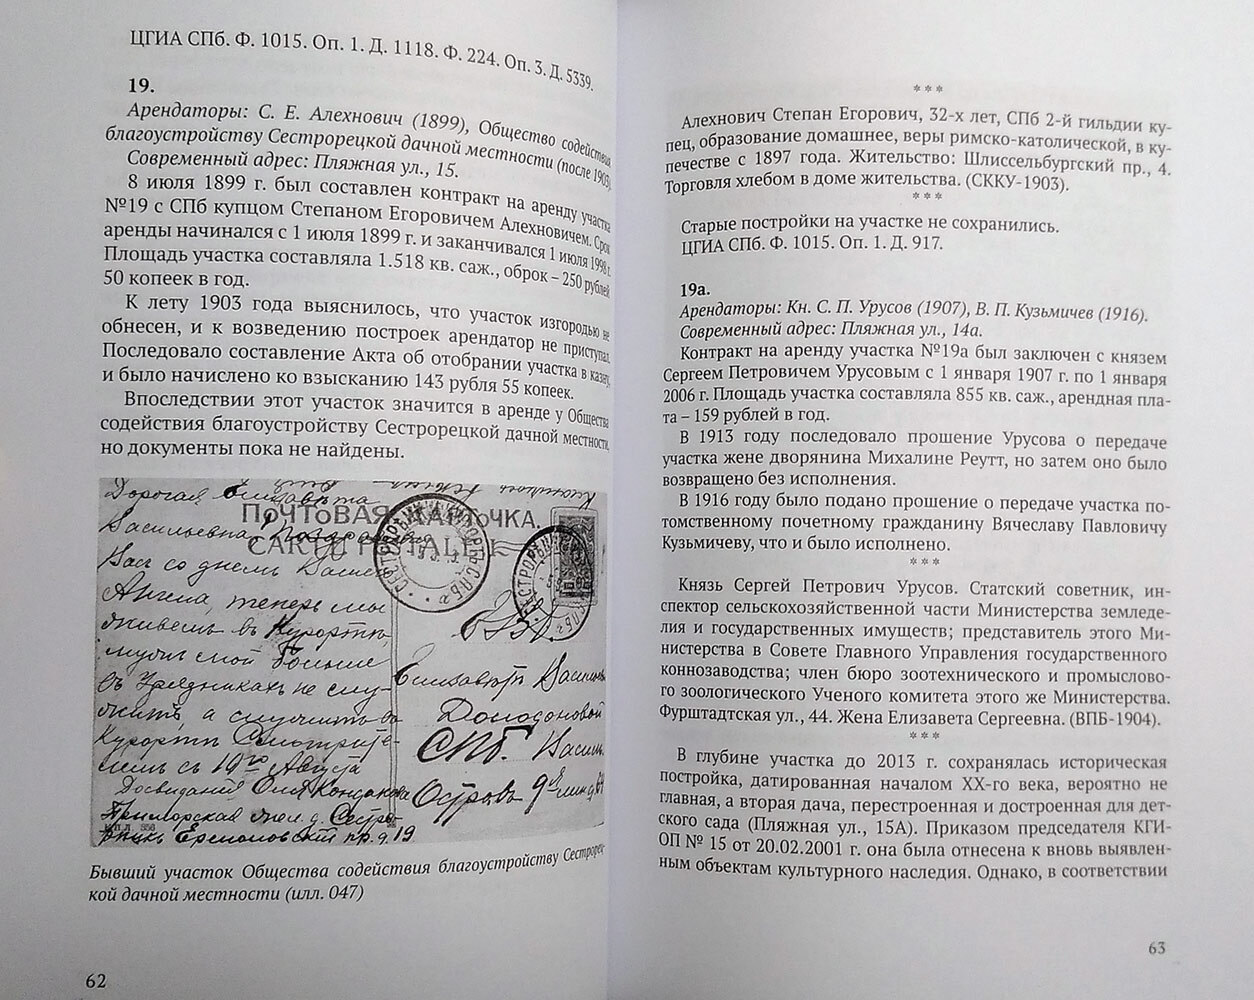 ЦГИА СПб. Ф. 1015. Оп. 1. Д. 1118. Ф. 224. Оп. 3. Д. 5339.
19.
Арендаторы: С. Е. Алехнович (1899), Общество содействия
благоустройству Сестрорецкой дачной местности (после 1903).
Современный адрес: Пляжная ул., 15.
8 июля 1899 г. был составлен контракт на аренду участка
№19 с СПб купцом Степаном Егоровичем Алехновичем. Срок
аренды начинался с 1 июля 1899 г. и заканчивался 1 июля 1998 г.
Площадь участка составляла 1.518 кв. саж., оброк – 250 рублей
50 копеек в год.
К лету 1903 года выяснилось, что участок изгородью не
обнесен, и к возведению построек арендатор не приступал.
Последовало составление Акта об отобрании участка в казну,
и было начислено ко взысканию 143 рубля 55 копеек.
Впоследствии этот участок значится в аренде у Общества
содействия благоустройству Сестрорецкой дачной местности,
но документы пока не найдены.
Дорогая Елизавета
ПОЧТОВАЯ КАРТОЧКА.
Васильевна
CARTE POSTALE
Васъ со днемъ Вашего
Ангела, теперь мы
живемъ въ Курортѣ,
мужъ мой больше
не слу-
житъ, а служитъ въ
Курортѣ Смотрите-
лемъ съ 19го Августа
Досвиданія Оля
Приморская жел. д. Сестро-
Ермоловскій пр. д. 19
Елизаветѣ Васильевнѣ
СПб. Васил.
Островъ 9я лин. д.
Бывший участок Общества содействия благоустройству Сестрорец-
кой дачной местности (илл. 047)
62
* * *
Алехнович Степан Егорович, 32-х лет, СПб 2-й гильдии ку-
пец, образование домашнее, веры римско-католической, в ку-
печестве с 1897 года. Жительство: Шлиссельбургский пр., 4.
Торговля хлебом в доме жительства. (СККУ-1903).
* * *
Старые постройки на участке не сохранились.
ЦГИА СПб. Ф. 1015. Оп. 1. Д. 917.
19а.
Арендаторы: Кн. С. П. Урусов (1907), В. П. Кузьмичев (1916).
Современный адрес: Пляжная ул., 14а.
Контракт на аренду участка №19а был заключен с князем
Сергеем Петровичем Урусовым с 1 января 1907 г. по 1 января
2006 г. Площадь участка составляла 855 кв. саж., арендная пла-
та – 159 рублей в год.
В 1913 году последовало прошение Урусова о передаче
участка жене дворянина Михалине Реутт, но затем оно было
возвращено без исполнения.
В 1916 году было подано прошение о передаче участка по-
томственному почетному гражданину Вячеславу Павловичу
Кузьмичеву, что и было исполнено.
* * *
Князь Сергей Петрович Урусов. Статский советник, ин-
спектор сельскохозяйственной части Министерства земледе-
лия и государственных имуществ; представитель этого Ми-
нистерства в Совете Главного Управления государственного
коннозаводства; член бюро зоотехнического и промыслово-
го зоологического Ученого комитета этого же Министерства.
Фурштадтская ул., 44. Жена Елизавета Сергеевна. (ВПБ-1904).
* * *
В глубине участка до 2013 г. сохранялась историческая
постройка, датированная началом XX-го века, вероятно не
главная, а вторая дача, перестроенная и достроенная для дет-
ского сада (Пляжная ул., 15А). Приказом председателя КГИ-
ОП № 15 от 20.02.2001 г. она была отнесена к вновь выявлен-
ным объектам культурного наследия. Однако, в соответствии
63